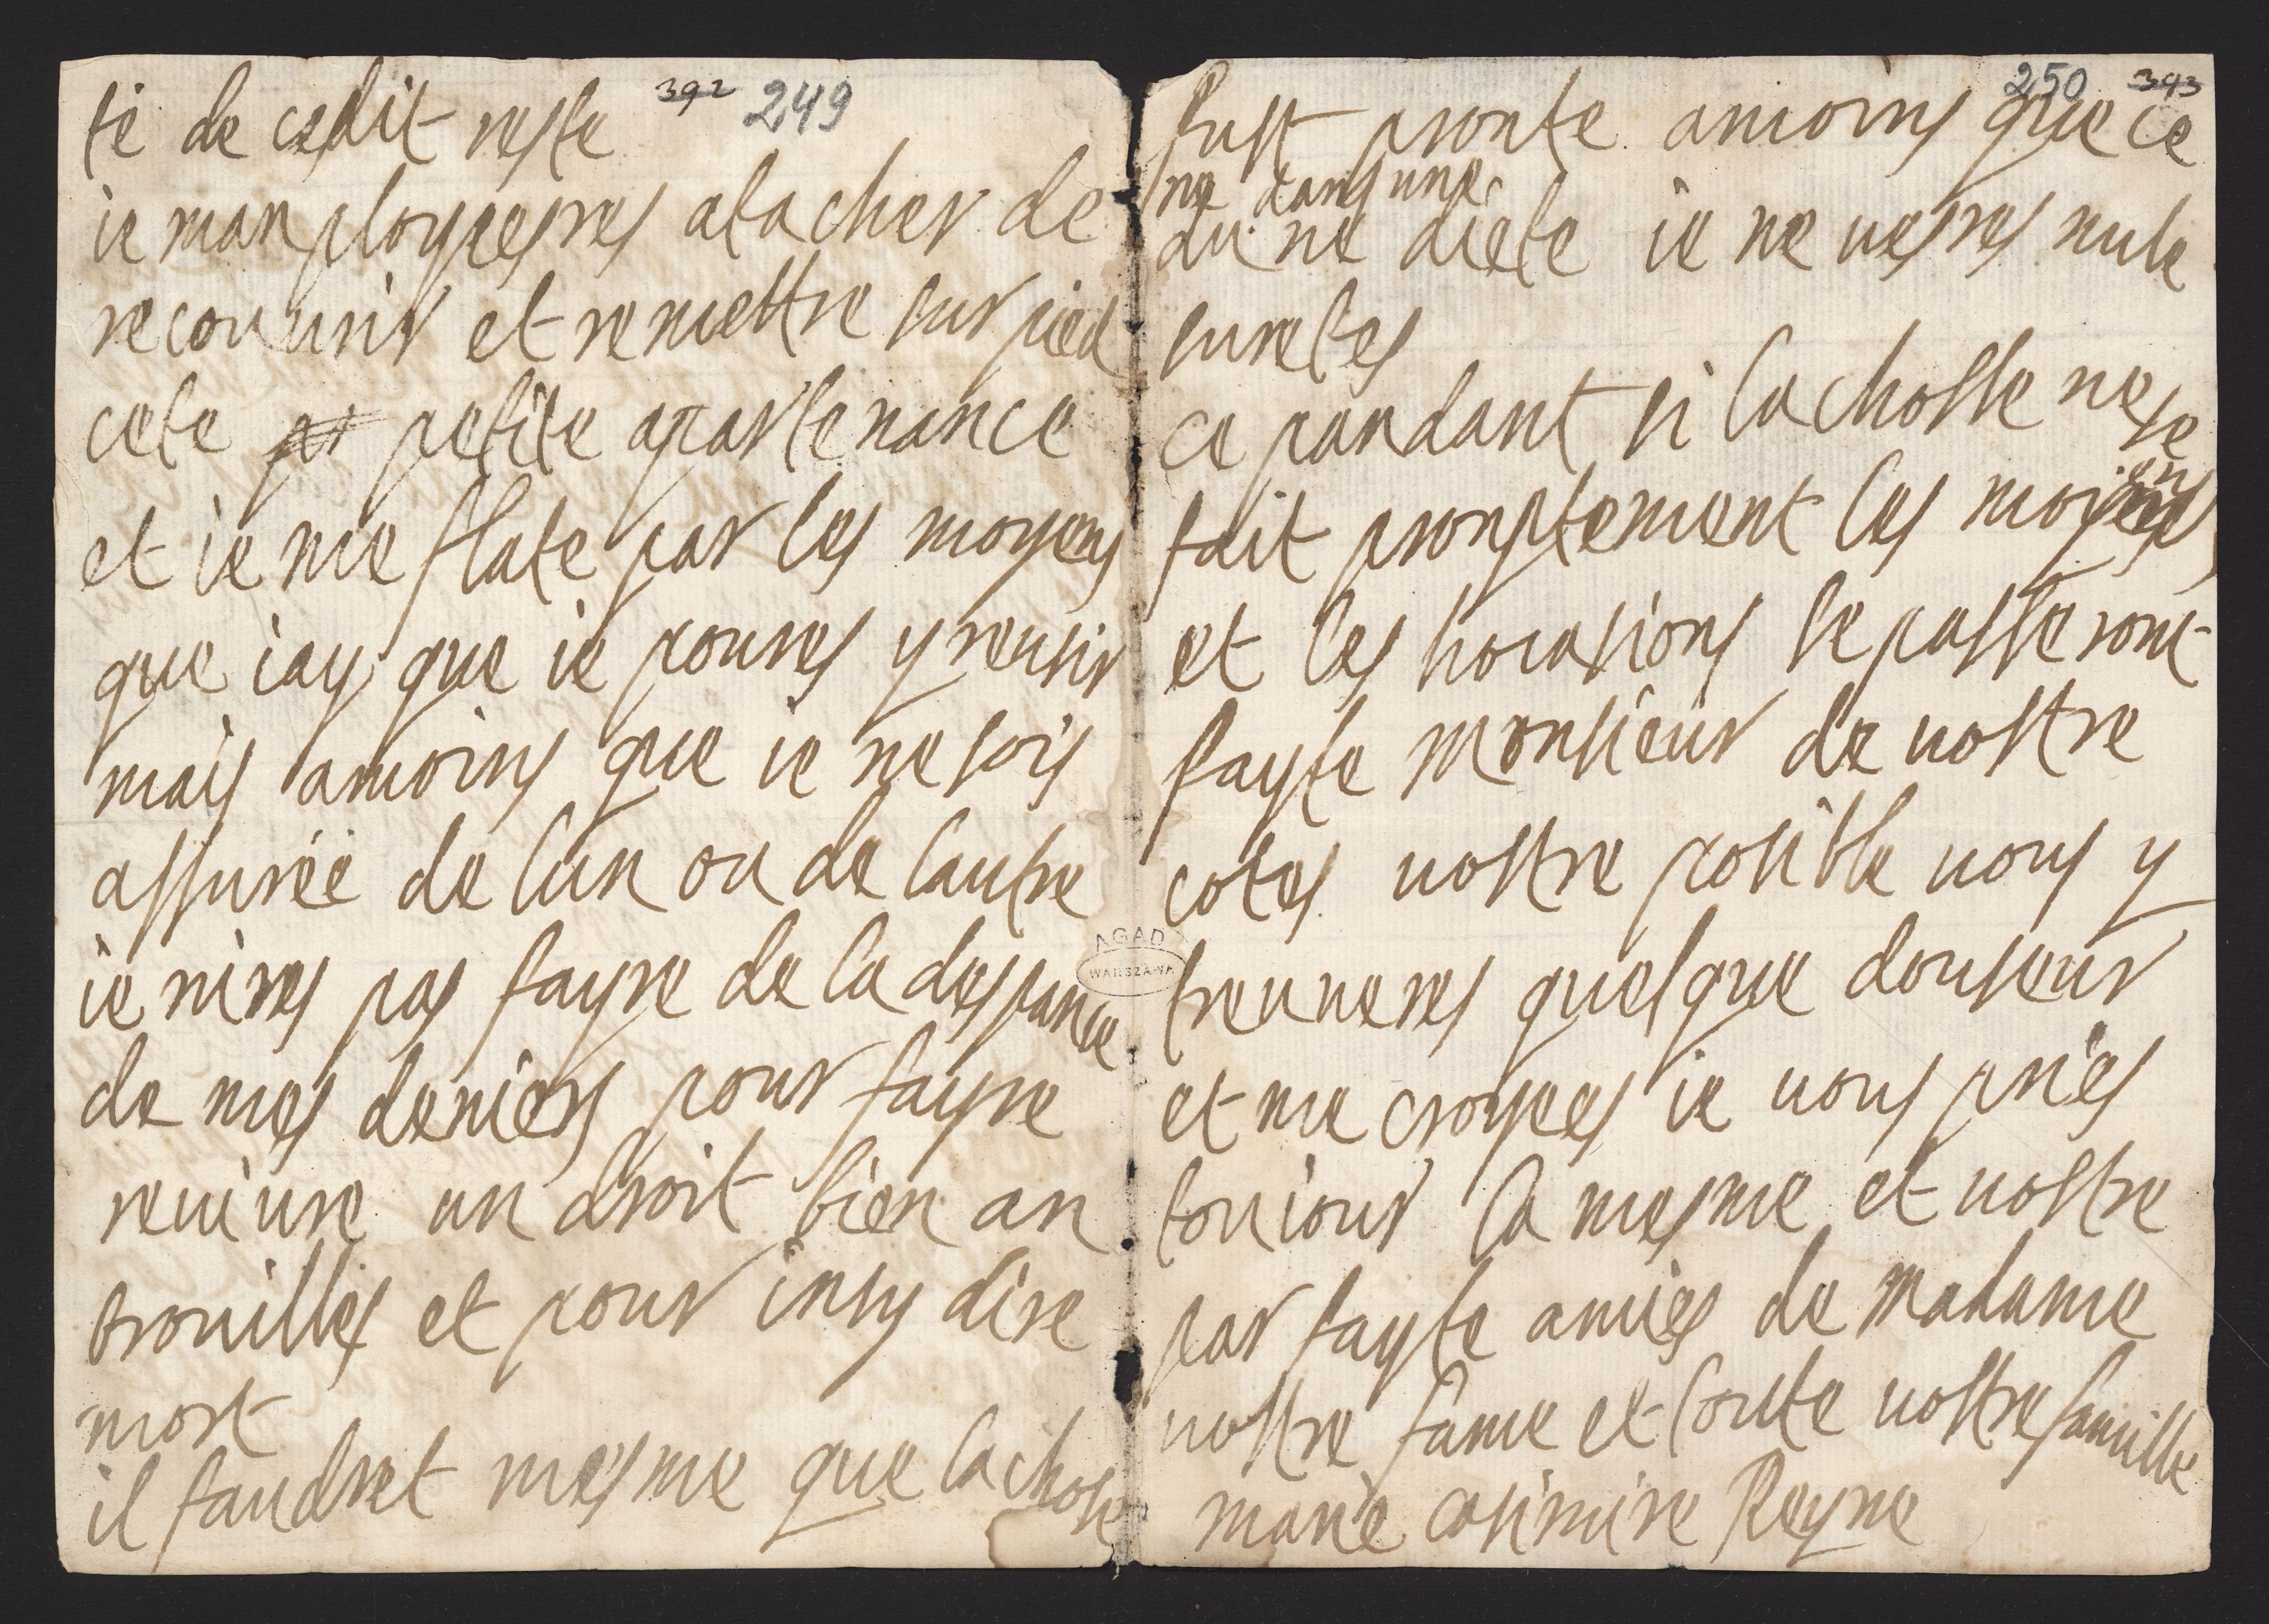 392 249
té de cedit reste
ie manployeres atacher de
recouurir et remettre sur pied
cete pt petite apartenance
et ie me flate par les moyens
que iay que ie poures y reusir
mais amoins que ie ne sois
assurée de lun ou de lautre
ie nires pas fayre de la despance
de mes deniers pour fayre
reuiure un droit bien an
brouilles et pour insy dire
mort
il faudret mesme que la chose
250 393
fust pronte amoins que ce
ne dans une
du ne diete ie ne ueres nule
suretes
ce pandant si la chosse ne se
fait promptement les moiens
et les hocasions se passeront
fayte monsieur de uostre
cotes uostre posible uous y
treuueres quelque douseur
et me croyees ie uous pries
touiour la mesme et uostre
par fayte amies de madame
uostre fame et toute uostre famille
marie casimire Reyne
AGAD
WARSZAWA